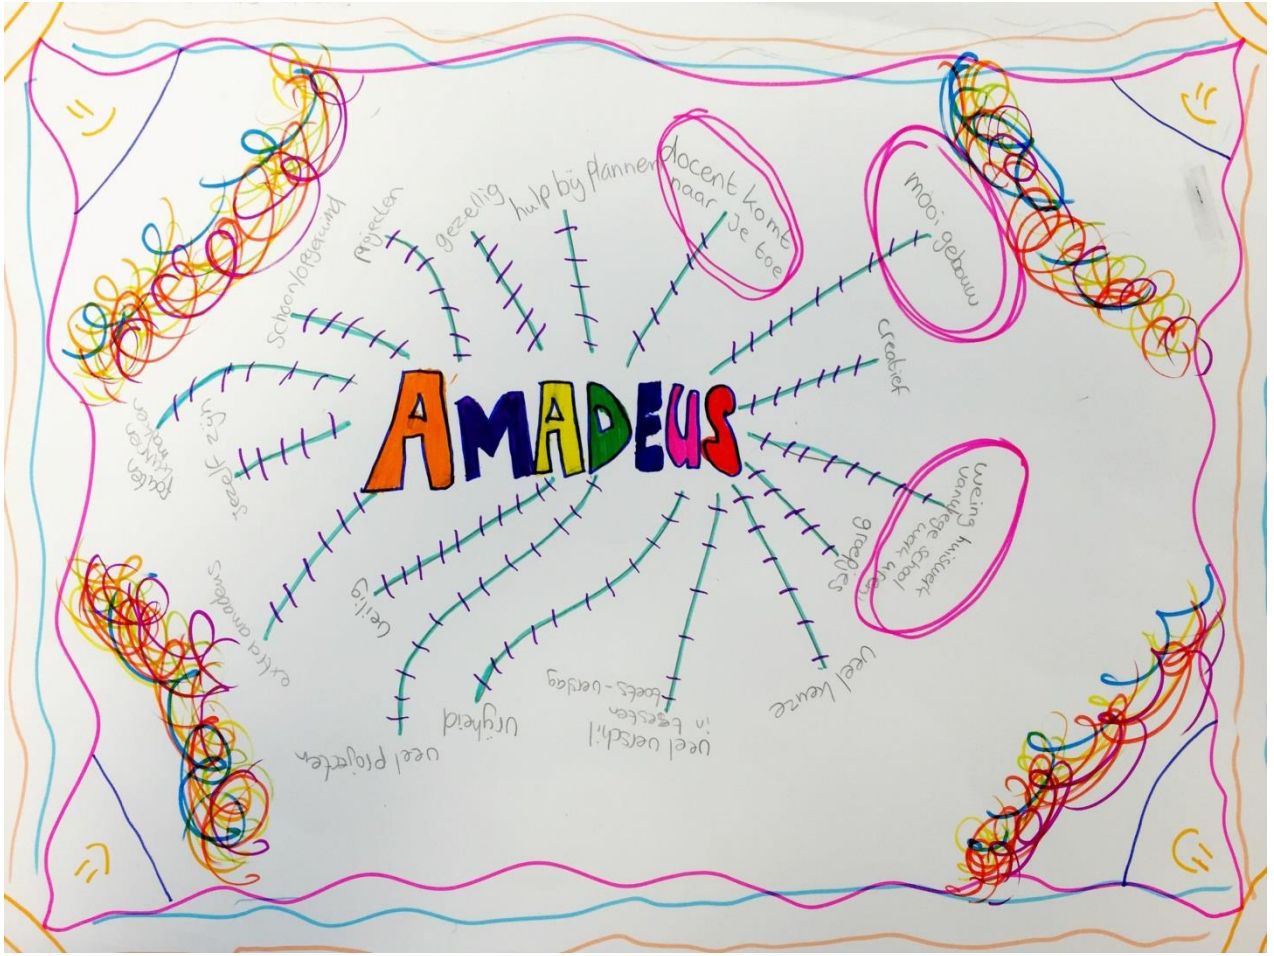 AMADEUS
schoon/opgeruimd
projecten
gezellig
hulp bij plannen
docent komt
naar je toe
mooi gebouw
creatief
weing huiswerk
vanwege school
werk uren
groepjes
veel keuze
veel verschil
in toetsen
toets-verslag
vrijheid
veel projecten
veilig
extra amadeus
jezelf zijn
fouten
kunnen
maken